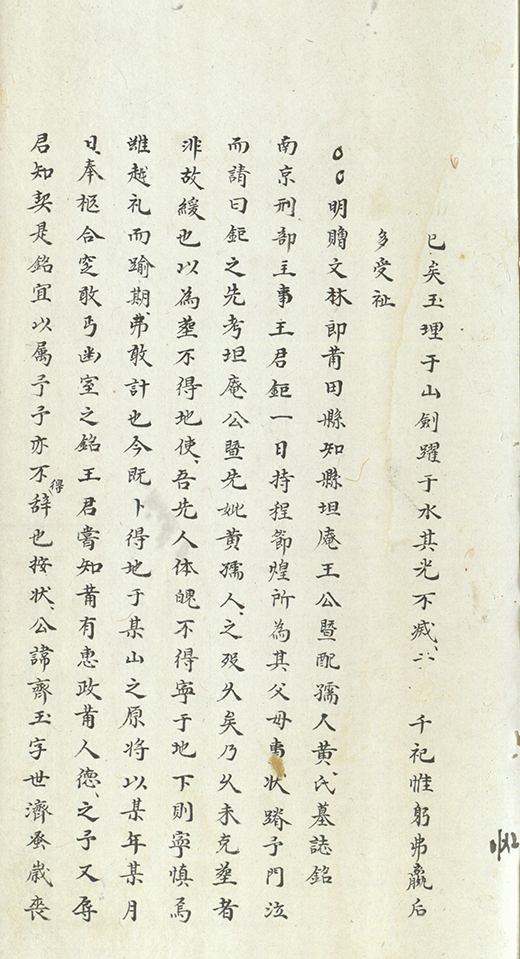 已矣玉埋于山劍躍于水其光不烕 千祀惟躬弗羸后
多受祉
○○明贈文林郎莆田縣知縣坦庵王公暨配孺人黄氏墓誌銘
南京刑部主事王君鉅一日持程節煌所為其父母事狀踏予門泣
而請曰鉅之先考坦庵公暨先妣黄孺人之歿久矣乃久未克塟者
非故緩也以為塟不得地使吾先人体魄不得寧于地下則寧慎焉
雖越礼而踰期弗敢計也今既卜得地于某山之原将以某年某月
日奉柩合窆敢丐幽室之銘王君嘗知莆有惠政莆人德之予又辱
君知契是銘宜以属予予亦不得辞也按状公諱齊玉字世濟蚤歲喪